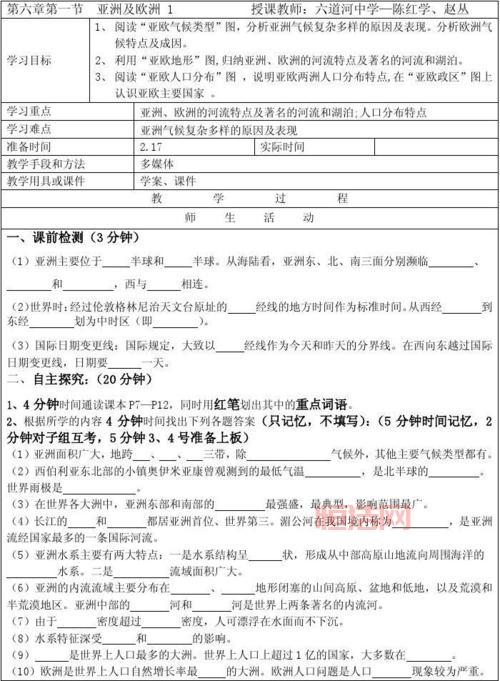 第六章第一节 亚洲及欧洲 1 授课教师：六道河中学—陈红学、赵丛
学习目标
1、 阅读“亚欧气候类型”图，分析亚洲气候复杂多样的原因及表现。分析欧洲气
候特点及成因。
2、 利用“亚欧地形”图,归纳亚洲、欧洲的河流特点及著名的河流和湖泊。
3、 阅读“亚欧人口分布”图 ，说明亚欧两洲人口分布特点,在“亚欧政区”图上
认识亚欧主要国家 。
学习重点 亚洲、欧洲的河流特点及著名的河流和湖泊;人口分布特点
学习难点 亚洲气候复杂多样的原因及表现
准备时间 2.17 实际时间
教学手段和方法 多媒体
教学用具或课件 学案、课件
教 学 过 程
师 生 活 动
一、课前检测（3 分钟）
（1）亚洲主要位于____半球和____半球。从海陆看，亚洲东、北、南三面分别濒临______、
______和______，西与____相连。
（2)世界时:经过伦敦格林尼治天文台原址的____经线的地方时间作为标准时间。从西经____到
东经____划为中时区（即______）。
（3）国际日期变更线：国际规定，大致以____经线作为今天和昨天的分界线。在西向东越过国际
日期变更线，日期要____一天。
二、自主探究：（20 分钟）
1、4 分钟时间通读课本 P7—P12，同时用红笔划出其中的重点词语。
2、根据所学的内容 4 分钟时间找出下列各题答案（只记忆，不填写）：（5 分钟时间记忆，2
分钟对子组互考，5 分钟 3、4 号准备上板）
（1）亚洲面积广大，地跨____、____、三带，除____________气候外，其他主要气候类型都有。
（2）西伯利亚东北部的小镇奥伊米亚康曾观测到的最低气温________，是北半球的______。
世界雨极是______。
（3）在世界各大洲中，亚洲东部和南部的________最强盛，最典型，影响范围最广。
（4）长江的____和____都居亚洲首位、世界第三。湄公河在我国境内称为________，是亚洲
流经国家最多的一条国际河流。
（5）亚洲水系主要有两大特点：一是水系结构呈____状，形成从中部高原山地流向周围海洋的
______水系。二是______流域面积广大。
（6）亚洲的内流流域主要分布在______、______地形闭塞的山间高原、盆地和低地，以及荒漠和
半荒漠地区。亚洲中部的____河和____河是世界上两条著名的内流河。
（7）由于____密度超过____密度，人可漂浮在水面而不下沉。
（8）水系特征深受____和____的影响。
（9）____是世界上人口最多的大洲。世界上人口上超过 1 亿的国家，大多数在______。
（10）欧洲是世界上人口自然增长率最____的大洲。欧洲人口问题是人口______现象较为严重。